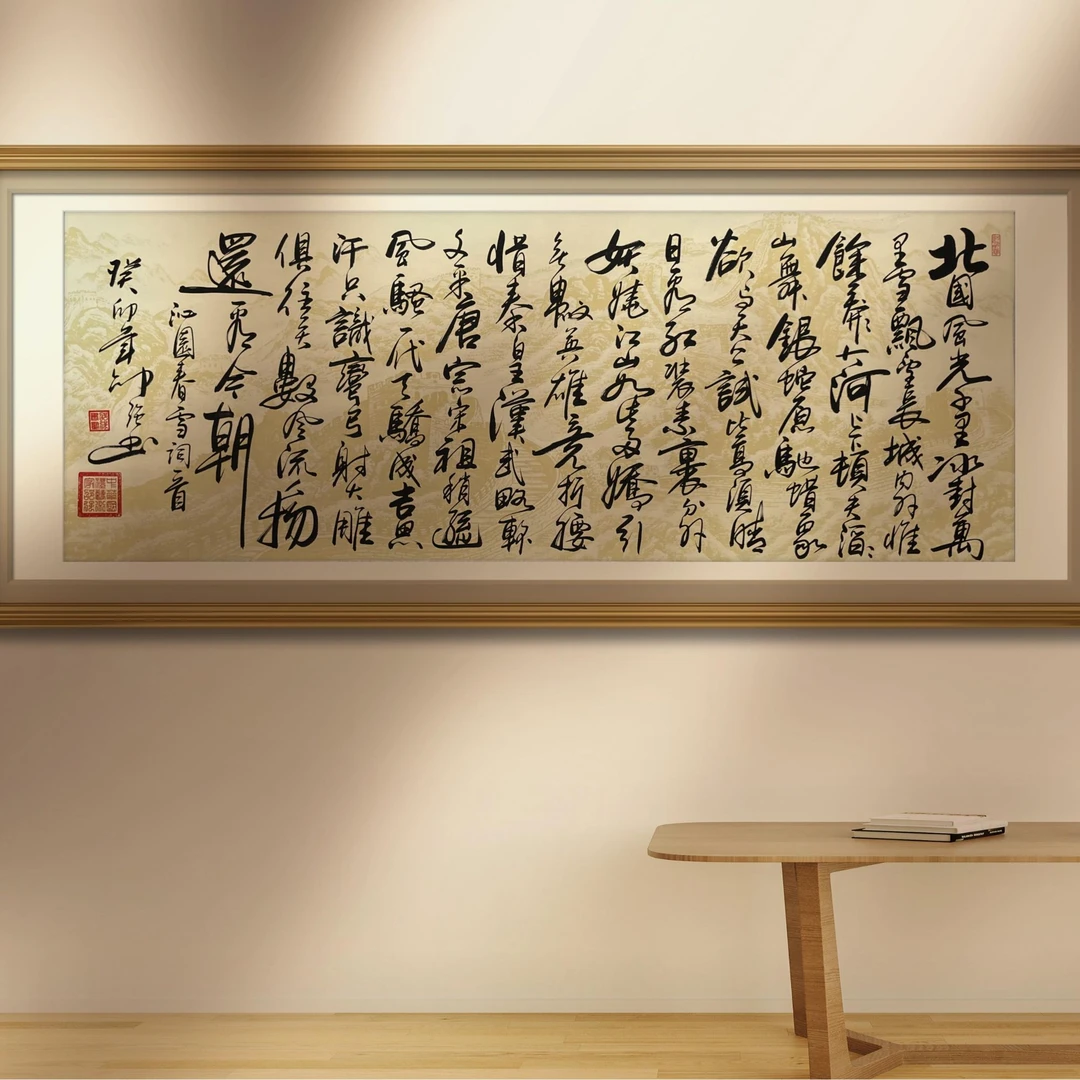 北國風光千里冰封萬
里雪飄望長城內外惟
餘莽莽大河上下頓失滔滔
山舞銀蛇原馳蠟象
欲與天公試比高須晴
日看紅裝素裹分外
妖嬈江山如此多嬌引
無數英雄競折腰
惜秦皇漢武略輸
文采唐宗宋祖稍遜
風騷一代天驕成吉思
汗只識彎弓射大雕
俱往矣數風流人物
還看今朝
沁園春雪詞一首
癸卯年书